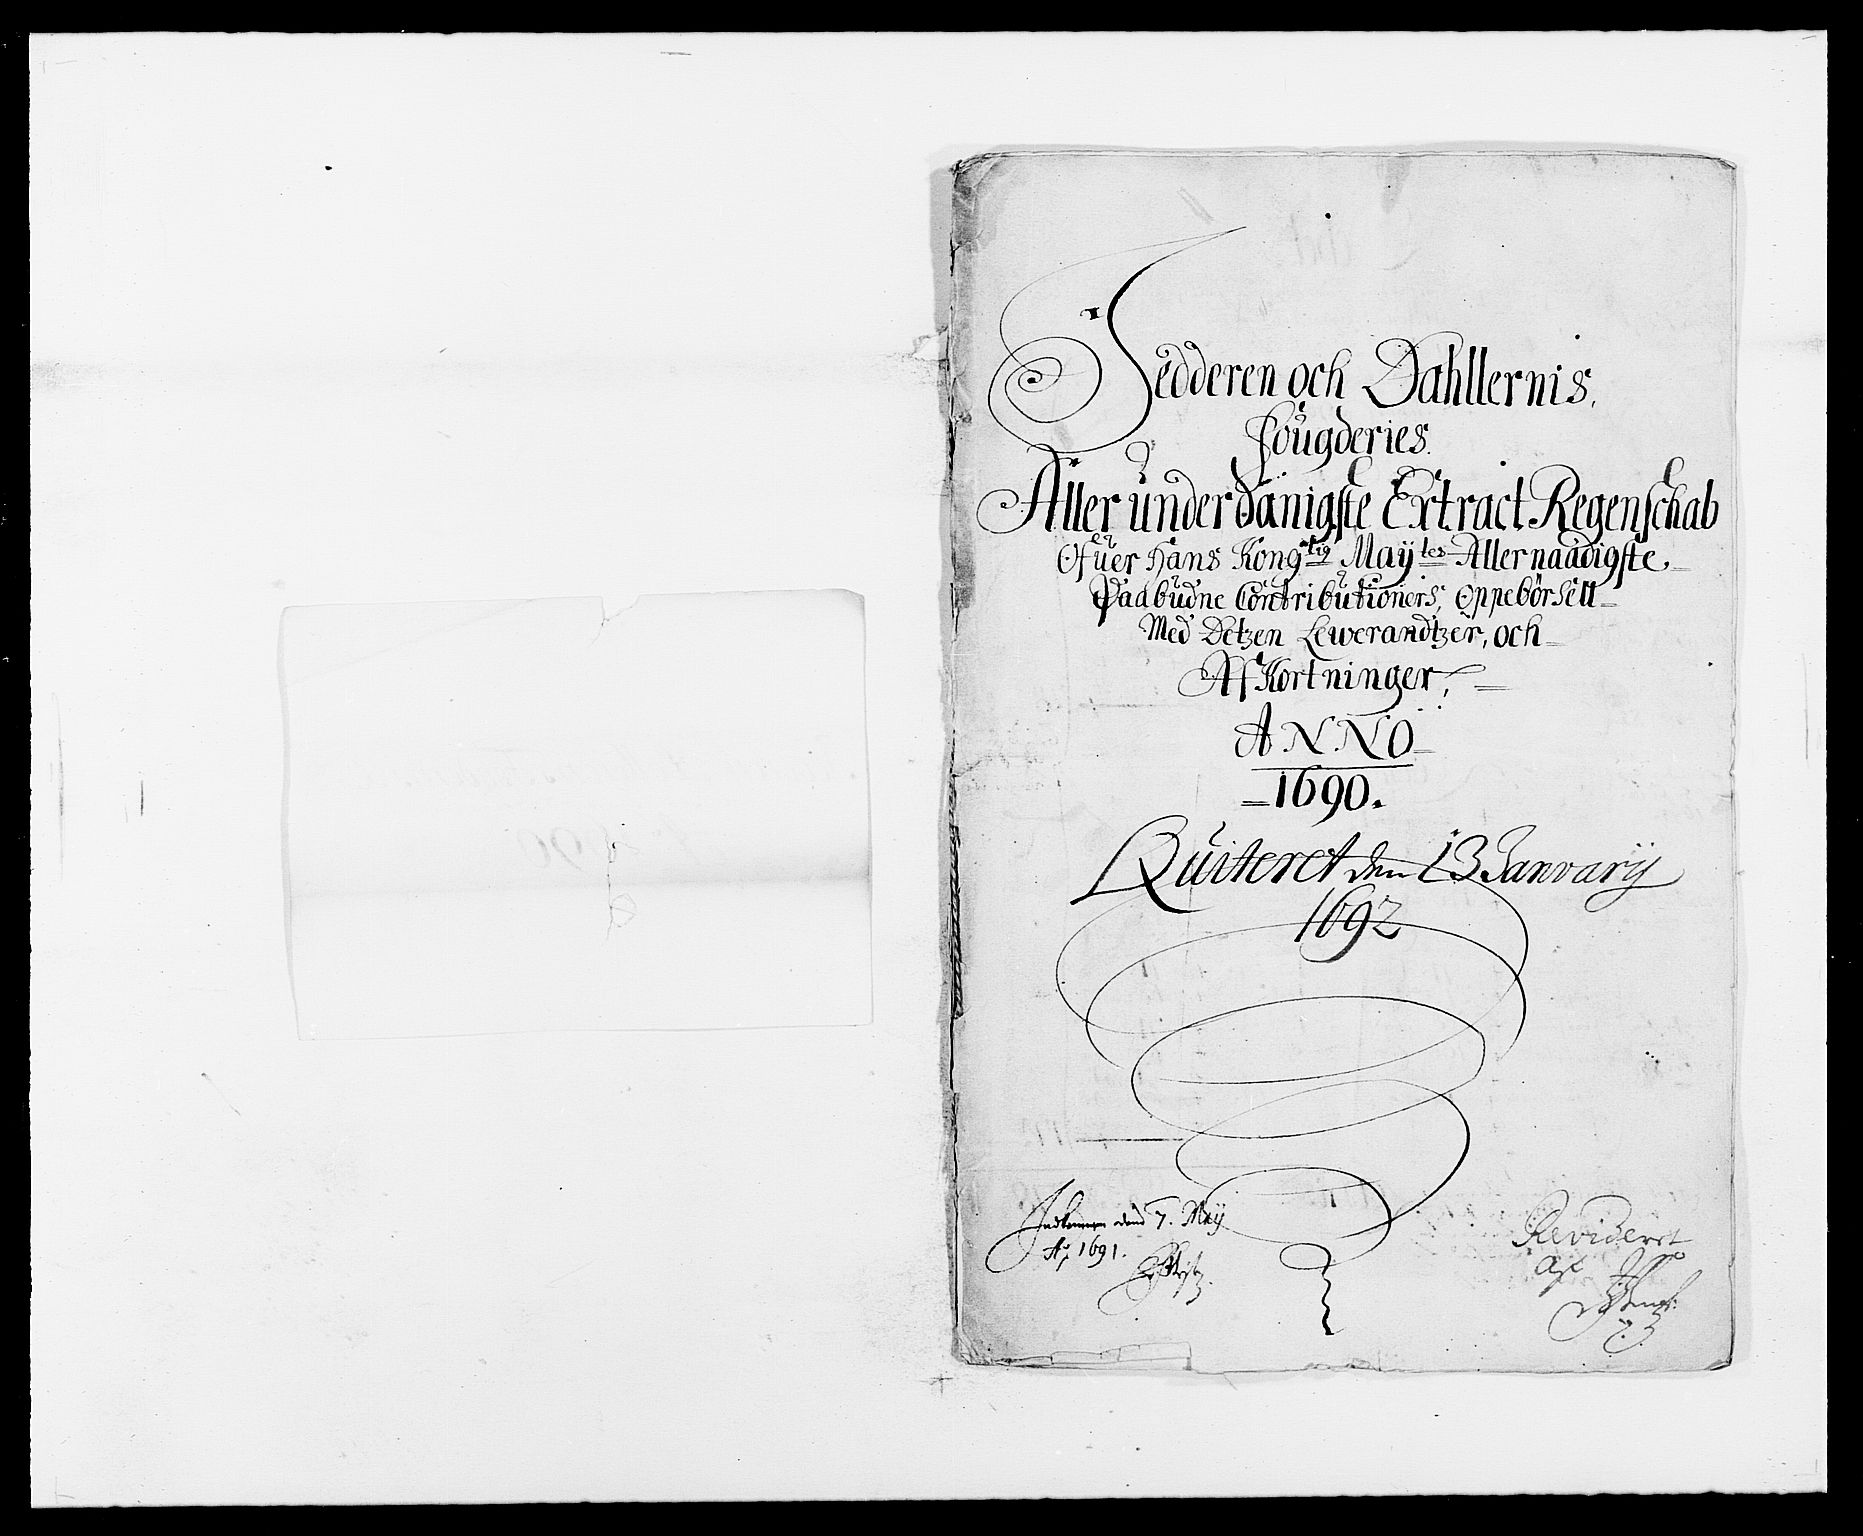 Jedderen och Dahllernis,
Fougderies.
Aller underdanigste Extract Regenschab
Ofuer Hans Kong:lig May:tes Allernaadigste,
Paabudne Contributioners, Oppebörsell
Med Detzen Lewerandtzer, och
AfKortninger,
ANNO
1690.
Quiteret den 13 Janvarij
1692
Indkommen dend 7. Maij
Ao 1691.
Reviderrt
Af